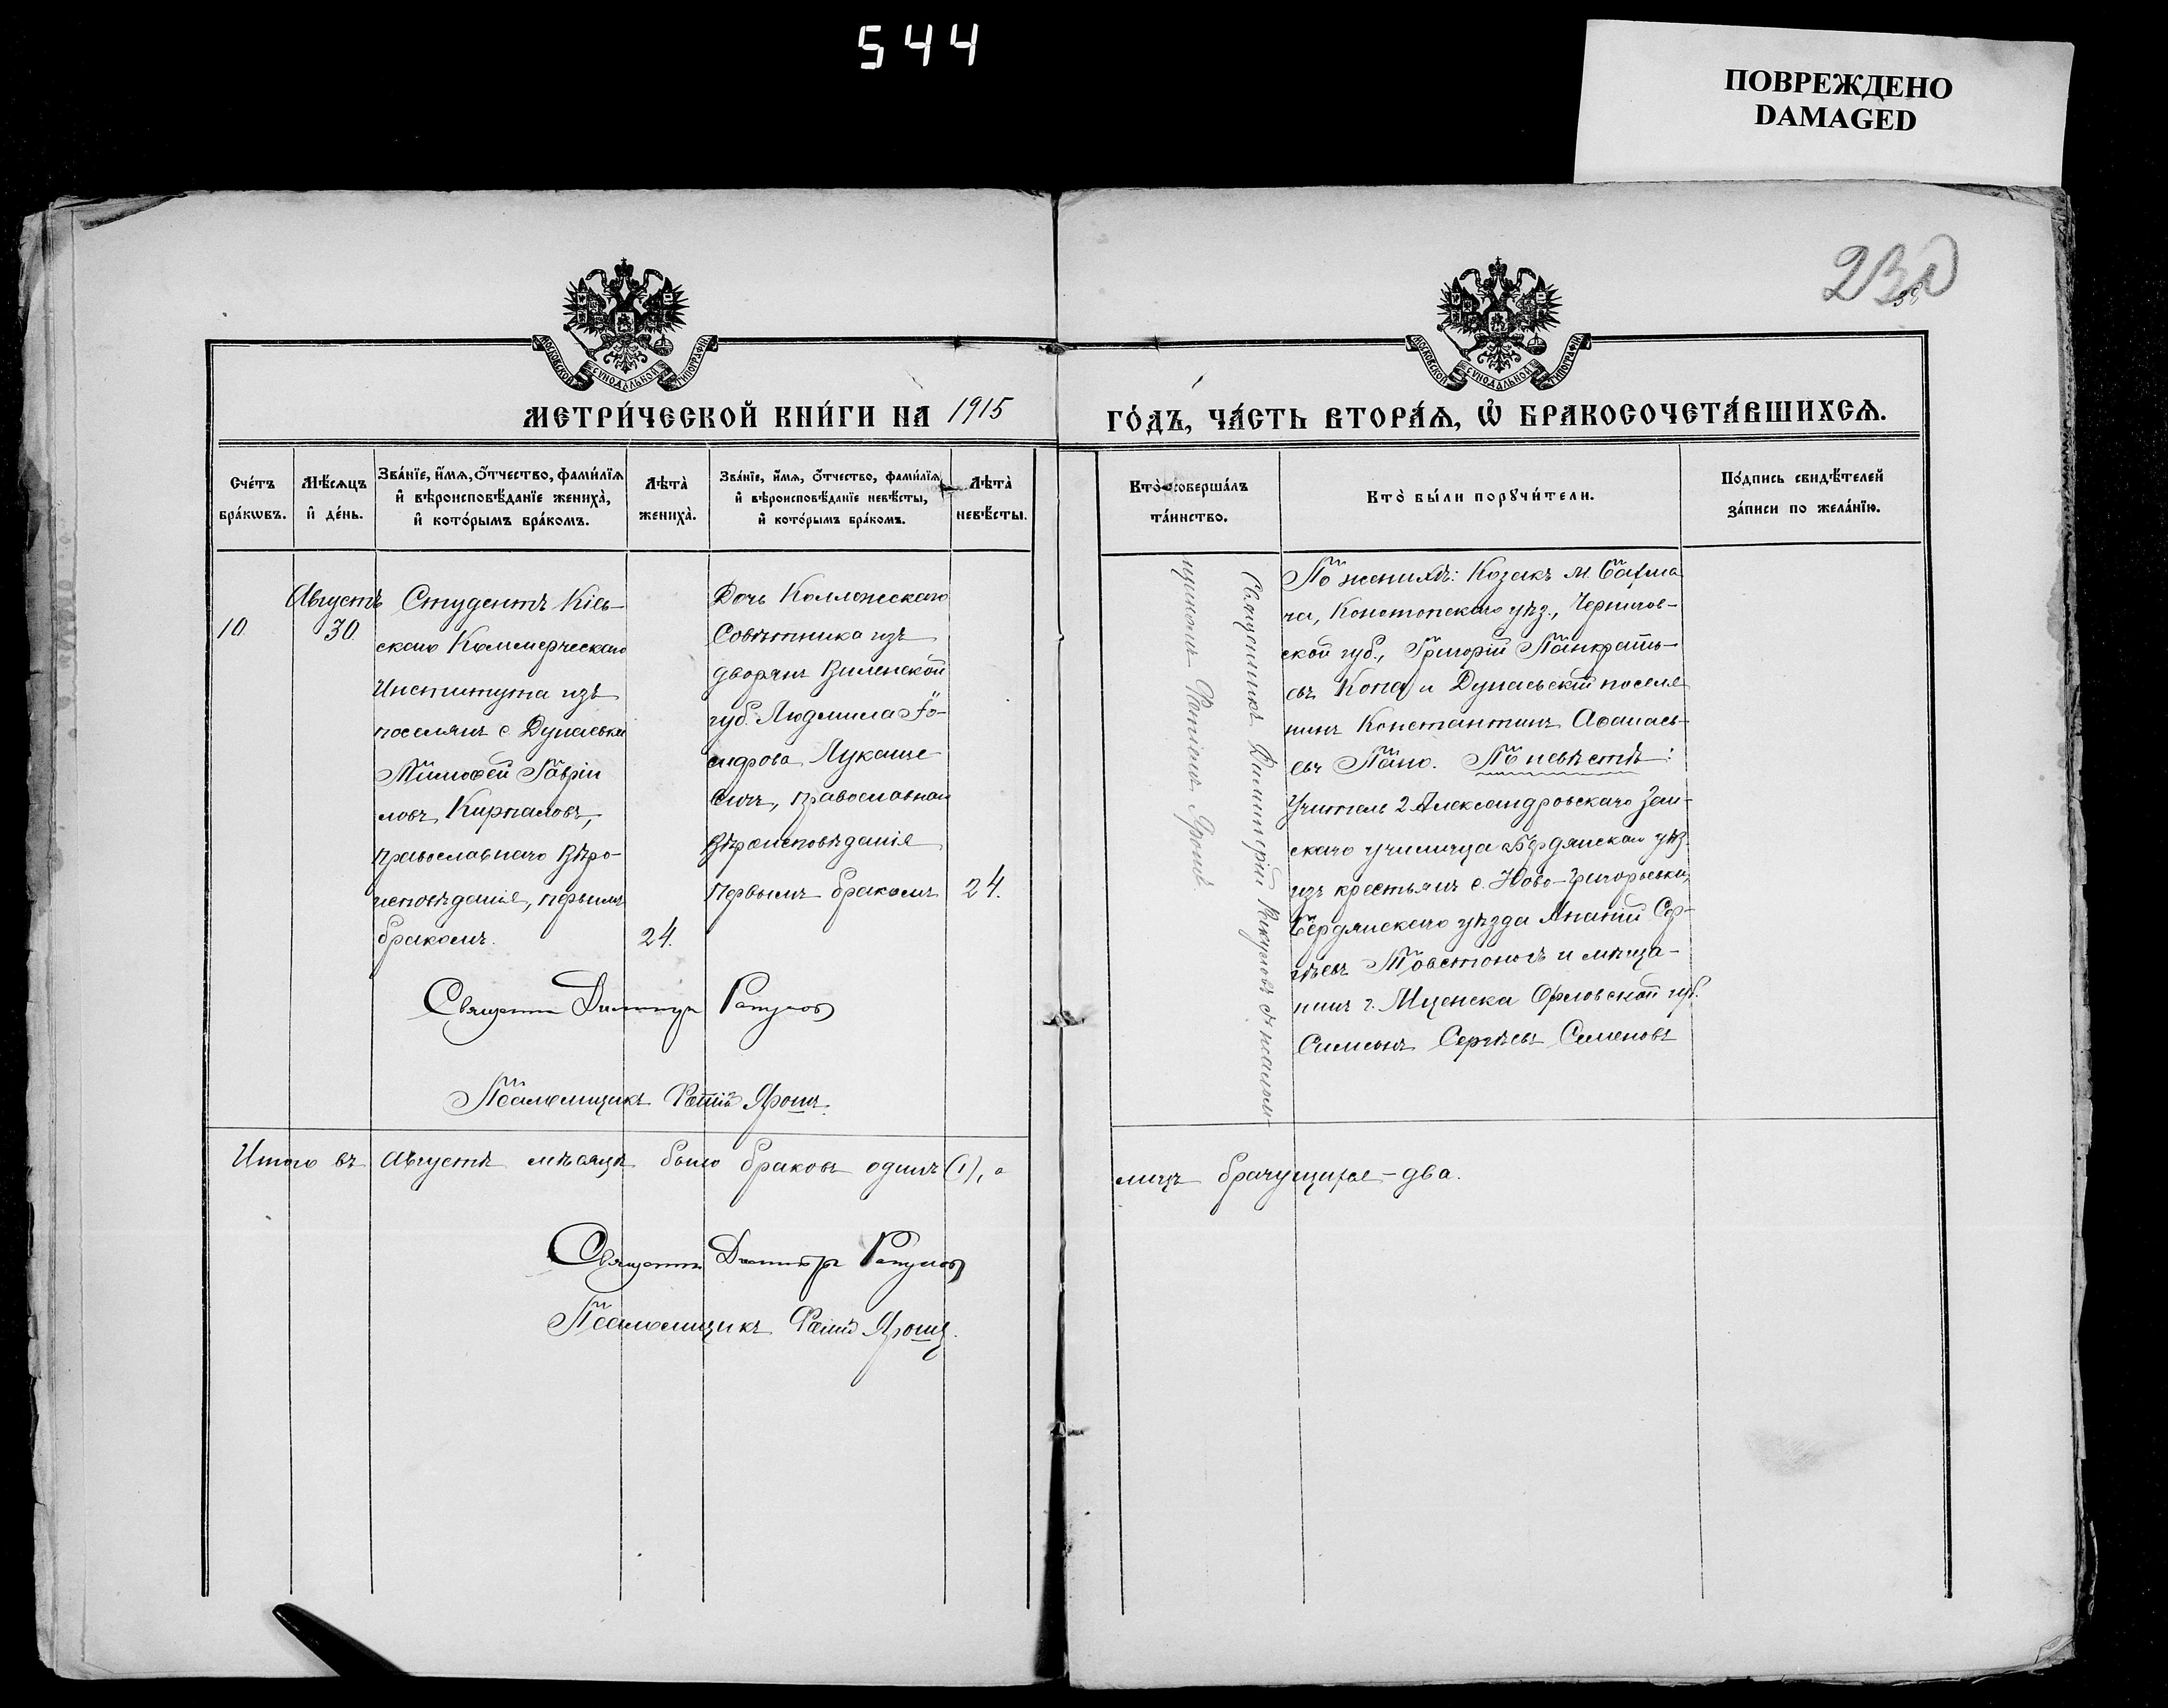 544
ПОВРЕЖДЕНО
DAMAGED
МОСКОВСКОЙ СУНОДАЛЬНОЙ ТИПОГРАФІИ
МОСКОВСКОЙ СУНОДАЛЬНОЙ ТИПОГРАФІИ
МЕТРИ́ЧЕСКОЙ КНИ́ГИ НА 1915
ГО́ДЪ, ЧА́СТЬ ВТОРА́Я, Ѡ҆ БРАКОСОЧЕТА́ВШИХСЯ.
Сче́тъ
бра́кѡвъ.
Мѣ́сяцъ
и҆ де́нь.
Зва́нїе, и҆́мѧ, ѻ҆́тчество, фами́лїѧ
и҆ вѣроисповѣ́данїе жениха̀,
и҆ кото́рымъ бра́комъ.
Лѣта̀
жениха̀.
Зва́нїе, и҆́мѧ, ѻ҆́тчество, фами́лїѧ
и҆ вѣроисповѣ́данїе невѣ́сты,
и҆ кото́рымъ бра́комъ.
Лѣта̀
невѣ́сты.
Кто̀ соверша́лъ
та́инство.
Кто̀ бы́ли порꙋчи́тели.
По́дпись свидѣ́телей
за́писи по жела́нїю.
10
Августъ
30
Студентъ Кіев-
скаго Коммерческаго
Института изъ
поселянъ с Дунаевки
Тимофей Гаврiи
ловъ Кирпаловъ,
православнаго вѣро-
исповѣданія, первымъ
бракомъ.
24.
Дочь Коллежскаго
Совѣтника изъ
дворянъ Виленской
губ. Людмила Іо-
сифова Лукаше
вичъ, православнаго
вѣроисповѣданія
первымъ бракомъ
24.
Священникъ Димитрій съ псалом
щикомъ Фотіемъ Ярошъ
По женихѣ: Козакъ м. Батма
ча, Конотопскаго уѣз., Чернигов-
ской губ., Григорій Панкратъ-
евъ Копа и Дунаевскій поселя
нинъ Константинъ Аѳанась-
евъ По невѣстѣ:
Учитель 2 Александровскаго Зем-
скаго училища Бердянскаго уѣз.
изъ крестьянъ с. Ново-Григорьевки,
Бердянскаго уѣзда Ананій Сер-
гѣевъ Товстоногъ и мѣща-
нинъ г. Мценска Орловской губ.
Симеонъ Сергѣевъ Семеновъ
Священникъ Димитрій
Псаломщикъ Фотій Ярошъ.
Итого въ Августѣ мѣсяцѣ было браковъ одинъ (1), а
лицъ брачущихся - два.
Священникъ Димитрій
Псаломщикъ Фотій Ярошъ.